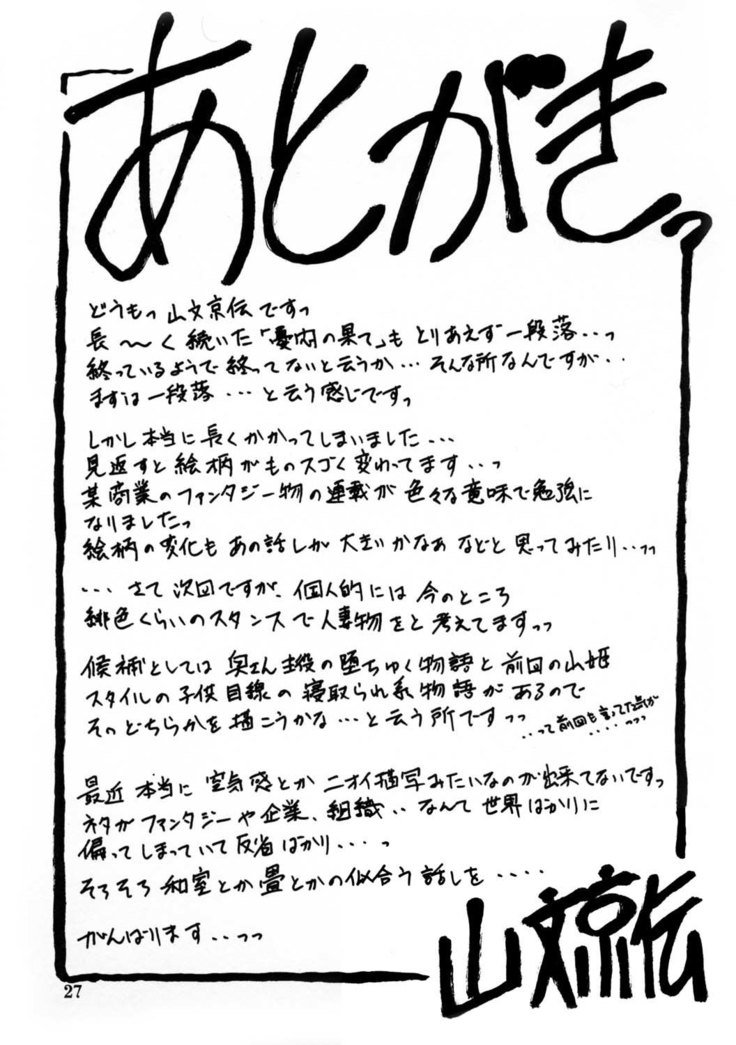 あとがきっ
どうもっ 山文京伝ですっ
長〜く続いた「憂内の果て」も とりあえず一段落‥っ
終っているようで終ってないと云うか… そんな所なんですが‥
まずは一段落…と云う感じですっ
しかし本当に長くかかってしまいました…
見返すと絵柄がものスゴく変わってます‥っ
某商業のファンタジー物の連載が色々な意味で勉強に
なりましたっ
絵柄の変化も あの話しが 大きいかなぁ などと思ってみたり‥っっ
…さて次回ですが、個人的には 今のところ
緋色くらいのスタンスで人妻物をと考えてますっっ
候補としては 奥さん主役の堕ちゆく物語と 前回の山姫
スタイルの子供目線の寝取られ系物語が あるので
そのどちらかを描こうかな…と云う所ですっっ
…って前回も言ってた気が
‥‥っっっ
最近 本当に 空気感とか ニオイ描写みたいなのが出来てないですっ
ネタが ファンタジーや企業、組織‥なんて世界ばかりに
偏ってしまっていて反省ばかり…‥っ
そろそろ 和室とか畳とかの似合う話しを‥‥
がんばります‥っっ
山文京伝
27